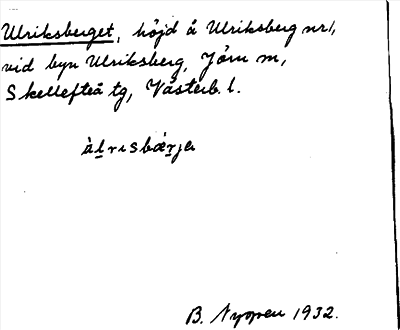 Ulriksberget, höjd å Ulriksberg nr 1,
vid byn Ulriksberg, Jörn sn,
Skellefteå tg, Västerb. l.
B. Nyopen 1932.